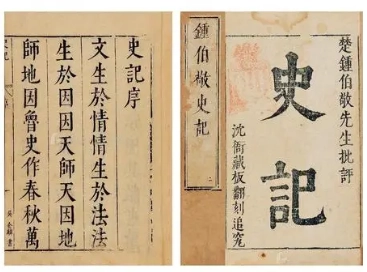 楚鍾伯敬先生批評
史記
沈衙藏板翻刻追究
鍾伯敬史記
史記序
文生於情情生於法法
生於因因天師天因地
師地因魯史作春秋萬